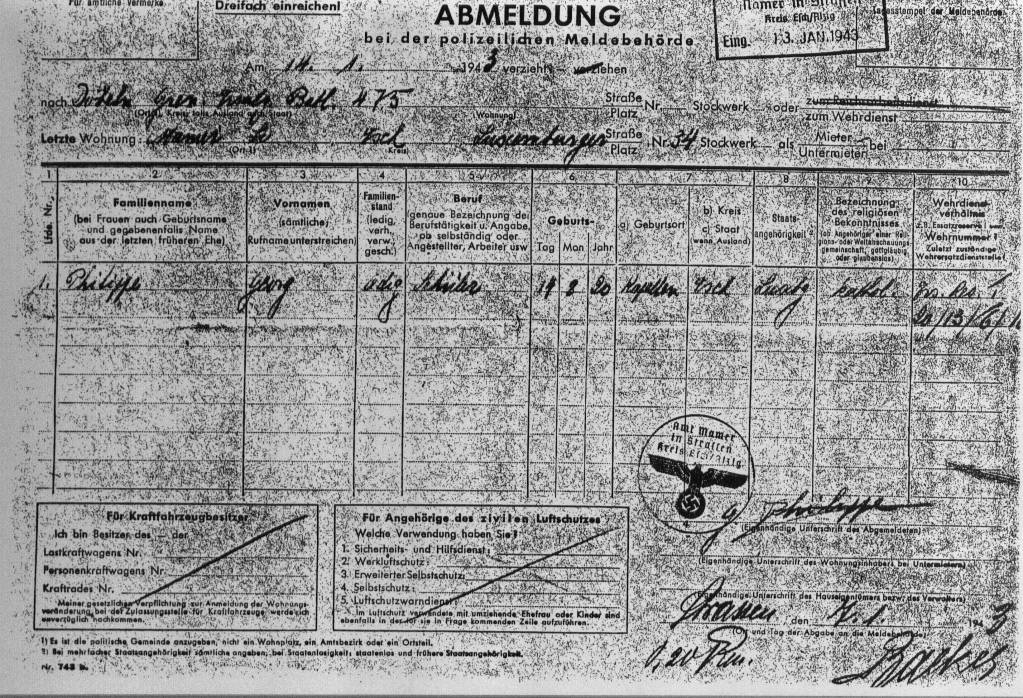 Für amtliche Vermerke
Dreifach einreichen!
ABMELDUNG
bei der polizeilichen Meldebehörde
Mamer in Strassen
Kreis Esch/Alzig
Eing. 13. JAN. 1943
Tagesstempel der Meldebehörde
Am 14. 1. 1943 verzieht verziehen
nach Gren. Batl. 475 Straße Platz Nr. Stockwerk oder zum Reichsarbeitsdienst zum Wehrdienst
(Ort) Kreis falls Ausland auch Staat) (Wohnung)
Letzte Wohnung: Mamer Esch Luxemburger Straße Platz Nr. 54 Stockwerk als Mieter Untermieter bei
(Ort 1) Kreis
1 2 3 4 5 6 7 8 9 10
Lfde. Nr.
Familienname
(bei Frauen auch Geburtsname
und gegebenenfalls Name
aus der letzten früheren Ehe)
Vornamen
(sämtliche)
Rufname unterstreichen)
Familien-
stand
(ledig,
verh.,
verw.,
gesch.)
Beruf
(genaue Bezeichnung der
Berufstätigkeit u. Angabe,
ob selbständig oder
Angestellter, Arbeiter usw
Geburts-
Tag Mon Jahr
a) Geburtsort
b) Kreis
c) Staat
(wenn Ausland)
Staats-
angehörigkeit 2)
Bezeichnung
des religiösen
Bekenntnisses
(ob Angehöriger einer Reli-
gions- oder Weltanschauungs-
gemeinschaft, gottgläubig
oder glaubenslos)
Wehrdienst-
verhältnis
z.B. Ersatzreserve I usw
Wehrnummer
Zuletzt zuständige
Wehrersatzdienststelle
1. Philippe Georg ledig Schüler 19 2 20 Kapellen Esch Luxbg kathol. Ers. Res. I
20/13/6/
Amt Mamer
in Strassen
Kreis Esch/Alzig
g. Philippe
(Eigenhändige Unterschrift des Abgemeldeten)
(Eigenhändige Unterschrift des Wohnungsinhabers bei Untermietern)
(Eigenhändige Unterschrift des Hauseigentümers bezw. des Verwalters)
Für Kraftfahrzeugbesitzer
Ich bin Besitzer des der
Lastkraftwagens Nr.
Personenkraftwagens Nr.
Kraftrades Nr.
Meiner gesetzlichen Verpflichtung zur Anmeldung der Wohnungs-
veränderung bei der Zulassungsstelle für Kraftfahrzeuge werde ich
unverzüglich nachkommen.
Für Angehörige des zivilen Luftschutzes
Welche Verwendung haben Sie?
1. Sicherheits- und Hilfsdienst:
2. Werkluftschutz:
3. Erweiterter Selbstschutz:
4. Selbstschutz:
5. Luftschutzwarndienst:
Im Luftschutz verwendete mit umziehende Ehefrau oder Kinder sind
ebenfalls in der für sie in Frage kommenden Zeile aufzuführen.
den 1. 1943
(Ort und Tag der Abgabe an die Meldebehörde)
0,20 Rm.
1) Es ist die politische Gemeinde anzugeben, nicht ein Wohnplatz, ein Amtsbezirk oder ein Ortsteil.
2) Bei mehrfacher Staatsangehörigkeit sämtliche angeben, bei Staatenlosigkeit: staatenlos und frühere Staatsangehörigkeit.
Nr. 743 b.